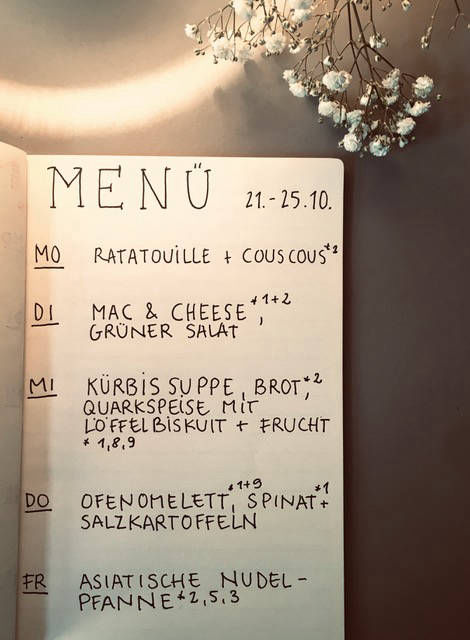 MENÜ 21.-25.10.
MO RATATOUILLE + COUSCOUS*2
DI MAC & CHEESE*1+2,
GRÜNER SALAT
MI KÜRBISSUPPE, BROT,*2
QUARKSPEISE MIT
LÖFFELBISKUIT + FRUCHT
* 1,8,9
DO OFENOMELETT,*1+9 SPINAT*1+
SALZKARTOFFELN
FR ASIATISCHE NUDEL-
PFANNE*2,5,3